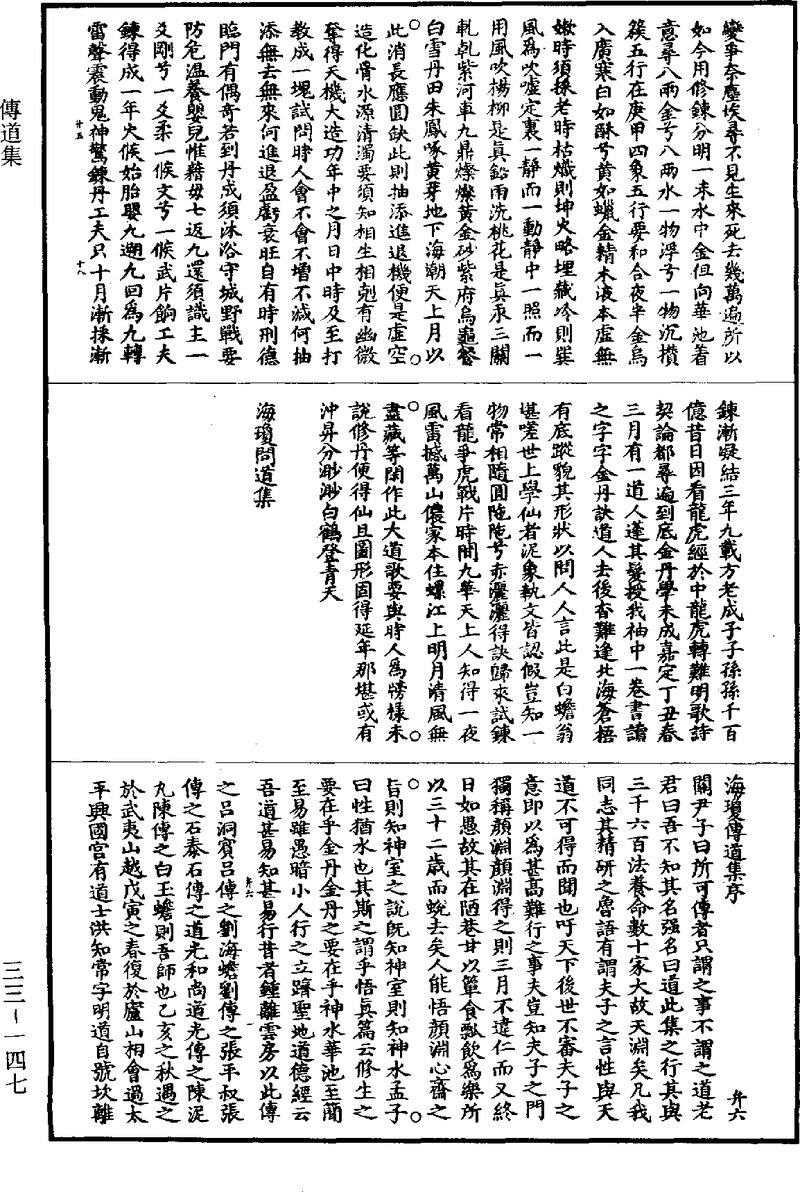 傳道集
三三－一四七
變爭奈塵埃尋不見生來死去幾萬遍所以
如今用修鍊分明一味水中金但向華池著
意尋八兩金兮八兩水一物浮兮一物沉攢
簇五行在庚甲四象五行要和合夜半金烏
入廣寒白如酥兮黃如蠟金精木液本虛無
嫩時須採老時枯熾則坤火略埋藏冷則巽
風為吹噓定裏一靜而一動靜中一照而一
用風吹楊柳是真鉛雨洗桃花是真汞三關
軋軋紫河車九鼎燦燦黃金砂紫府烏龜餐
白雪丹田朱鳳啄黃芽地下海潮天上月以
此消長應圓缺此則抽添進退機便是虛空
造化骨水源清濁要須知相生相剋有幽微
奪得天機大造功年中之月日中時及至打
教成一塊試問時人會不會不增不減何抽
添無去無來何進退盈虧衰旺自有時刑德
臨門有偶奇若到丹成須沐浴守城野戰要
防危溫養嬰兒惟藉母七返九還須識主一
爻剛兮一爻柔一候文兮一候武片餉工夫
鍊得成一年火候始胎嬰九遡九回為九轉
雷聲震動鬼神驚鍊丹工夫只十月漸採漸
廾五
十八
鍊漸凝結三年九載方老成子子孫孫千百
億昔日因看龍虎經於中龍虎轉難明歌詩
契論都尋遍到底金丹學未成嘉定丁丑春
三月有一道人蓬其髮授我袖中一卷書讀
之字字金丹訣道人去後杳難逢北海蒼梧
有底蹤貌其形狀以問人人言此是白蟾翁
堪嗟世上學仙者泥象執文皆認假豈知一
物常相隨圓陁陁兮赤灑灑得訣歸來試鍊
看龍爭虎戰片時間九華天上人知得一夜
風雷撼萬山儂家本住螺江上明月清風無
盡藏等閑作此大道歌要與時人為榜樣未
說修丹便得仙且圖形固得延年那堪或有
沖昇分渺渺白鶴登青天
海瓊問道集
海瓊傳道集序
弁六
關尹子曰所可傳者只謂之事不謂之道老
君曰吾不知其名强名曰道此集之行其與
三千六百法養命數十家大故天淵矣凡我
同志其精研之魯語有謂夫子之言性與天
道不可得而聞也吁天下後世不審夫子之
意即以為甚高難行之事夫豈知夫子之門
獨稱顏淵顏淵得之則三月不違仁而又終
日如愚故其在陋巷甘以簞食瓢飲為樂所
以三十二歲而蛻去矣人能悟顏淵心齋之
旨則知神室之說旣知神室則知神水孟子
曰性猶水也其斯之謂乎悟真篇云修生之
要在乎金丹金丹之要在乎神水華池至簡
至易雖愚暗小人行之立躋聖地道德經云
吾道甚易知甚易行昔者鍾離雲房以此傳
弁六
一
之呂洞賓呂傳之劉海蟾劉傳之張平叔張
傳之石泰石傳之道光和尚道光傳之陳泥
丸陳傳之白玉蟾則吾師也乙亥之秋遇之
於武夷山越戊寅之春復於廬山相會過太
平興國宮有道士洪知常字明道自號坎離